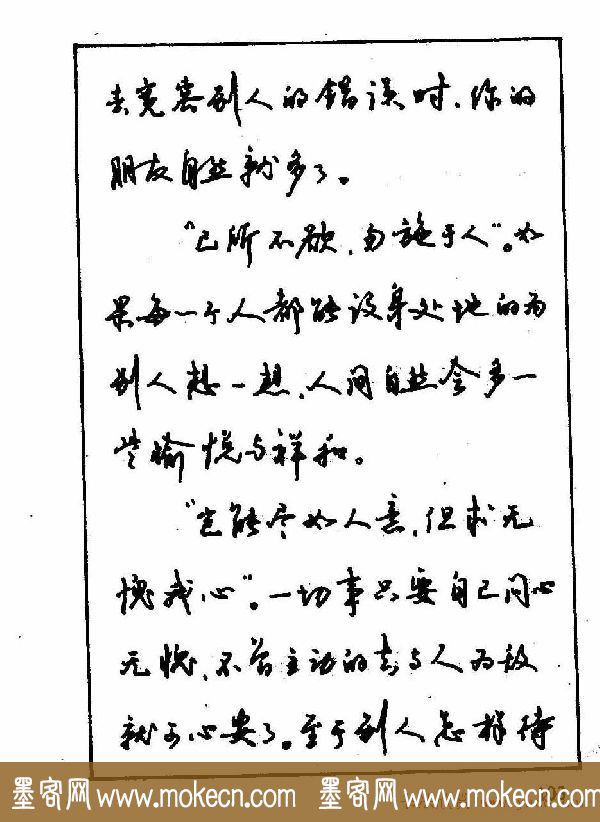 去宽容别人的错误时，你的
朋友自然就多了。
"己所不欲，勿施于人"。如
果每一个人都能设身处地的为
别人想一想，人间自然会多一
些愉悦与祥和。
"岂能尽如人意，但求无
愧我心"。一切事只要自己问心
无愧，不曾主动的去与人为敌
就可心安了。至于别人怎样待
墨客网 www.mokecn.com 墨客网 www.mokecn.com